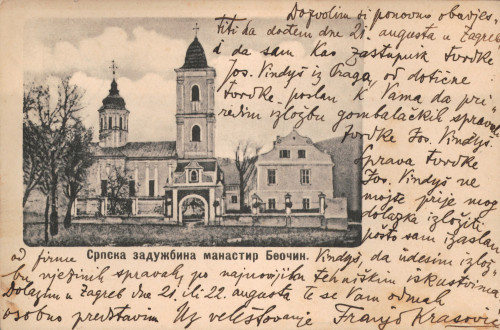 Dozvolim si ponovno obavjes-
titi da dođem dne 21. augusta u Zagreb
i da sam kao zastupnik tvrdke
Jos. Vindyš iz Praga, od dotične
tvrdke poslan k Vama da pri-
redim izložbu gombalačkih sprava
tvrdke Jos. Vindyš.
Sprava tvrdke
Jos. Vindyš ne
može prije mog
dolazka izložiti
pošto sam izaslan
Српска задужбина манастир Беочин.
od firme Vindyš, da udesim izlož-
bu njezinih sprava, po najnovijim tehničkim iskustvima
Dolazim u Zagreb dne 21. ili 22. augusta te se Vam odmah
osobno predstavim Uz veleštovanje Franjo Krasović